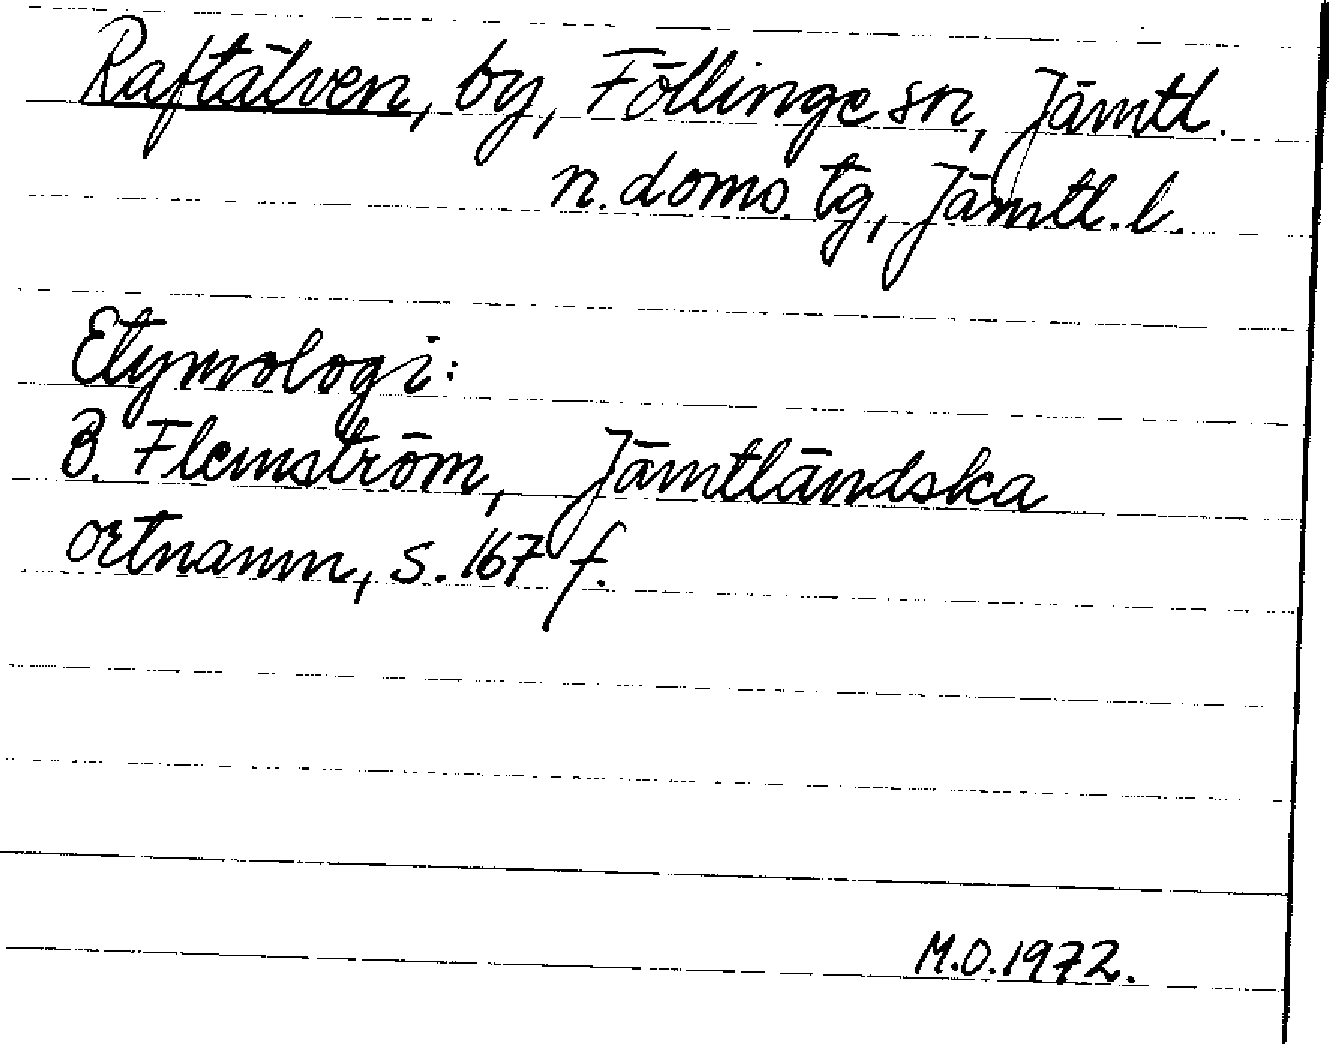 Raftälven, by, Föllinge sn, Jämtl.
n. doms. tg, Jämtl. l.
Etymologi:
B. Flemström, Jämtländska
ortnamn, s. 167 f.
M.O. 1972.